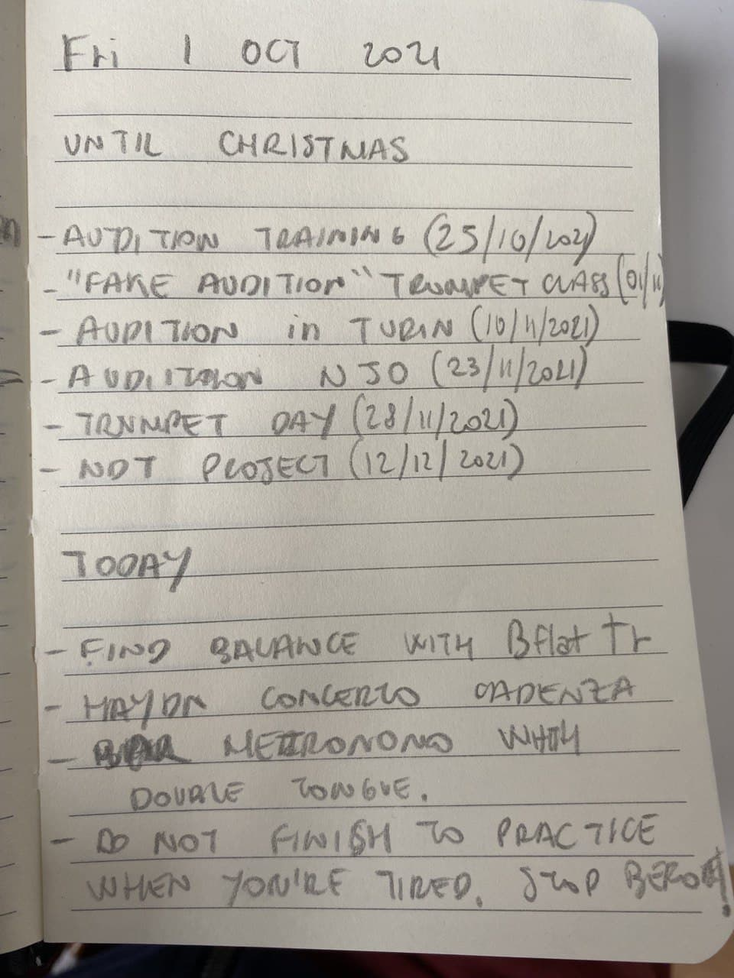 Fri 1 OCT 2021
UNTIL CHRISTMAS
- AUDITION TRAINING (25/10/2021)
- "FAKE AUDITION" TRUMPET CLASS (01/11)
- AUDITION in TURIN (10/11/2021)
- AUDITION NJO (23/11/2021)
- TRUMPET DAY (28/11/2021)
- NDT PROJECT (12/12/2021)
TODAY
- FIND BALANCE WITH Bflat Tr
- HAYDN CONCERTO CADENZA
- METRONONO WITH
DOUBLE TONGUE.
- DO NOT FINISH TO PRACTICE
WHEN YOU'RE TIRED. STOP BEFORE!